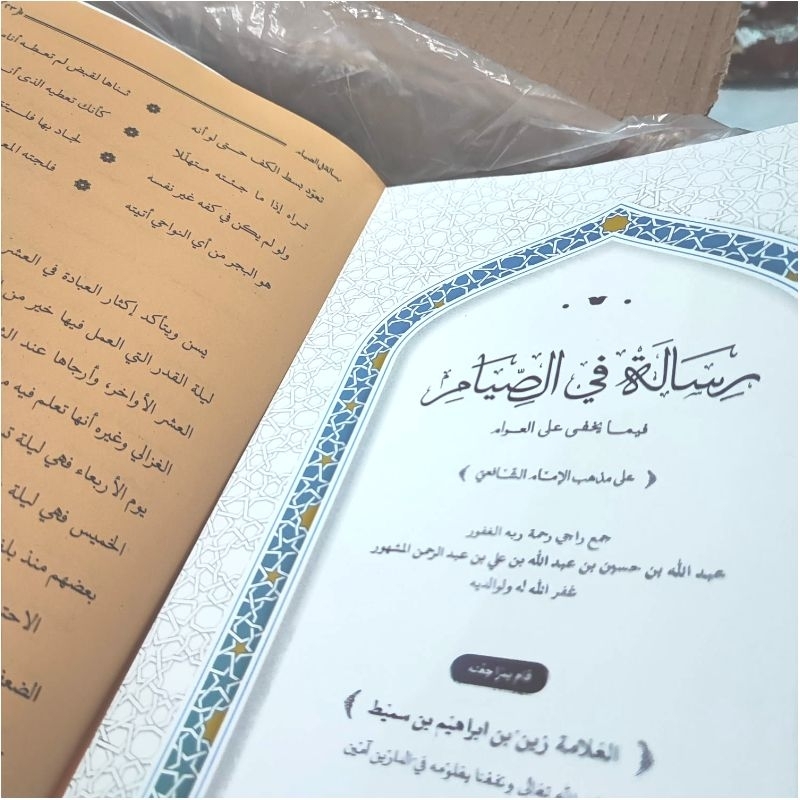 رسالة في الصيام
تعوّد بسط الكف حتى لو أنه
ثناها لقبض لم تعطه أنامله
تراه إذا ما جئته متهلّلا
كأنك تعطيه الذى أنت
ولو لم يكن في كفه غير نفسه
لجاد بها فليتق
هو البحر من أي النواحي أتيته
فلجته المعروف
يسن ويتأكد إكثار العبادة في العشر
ليلة القدر التي العمل فيها خير من
العشر الأواخر، وأرجاها عند
الغزالي وغيره أنها تعلم فيه
يوم الأربعاء فهي ليلة
الخميس فهي ليلة
بعضهم منذ
رسالة في الصيام
فيما يخفى على العوام
على مذهب الإمام الشافعي
جمع راجي رحمة ربه الغفور
عبد الله بن حسين بن عبد الله بن علي بن عبد الرحمن المشهور
غفر الله له ولوالديه
قام بمراجعته
العلامة زين بن ابراهيم بن سميط
الله تعالى ونفعنا بعلومه في الدارين آمين